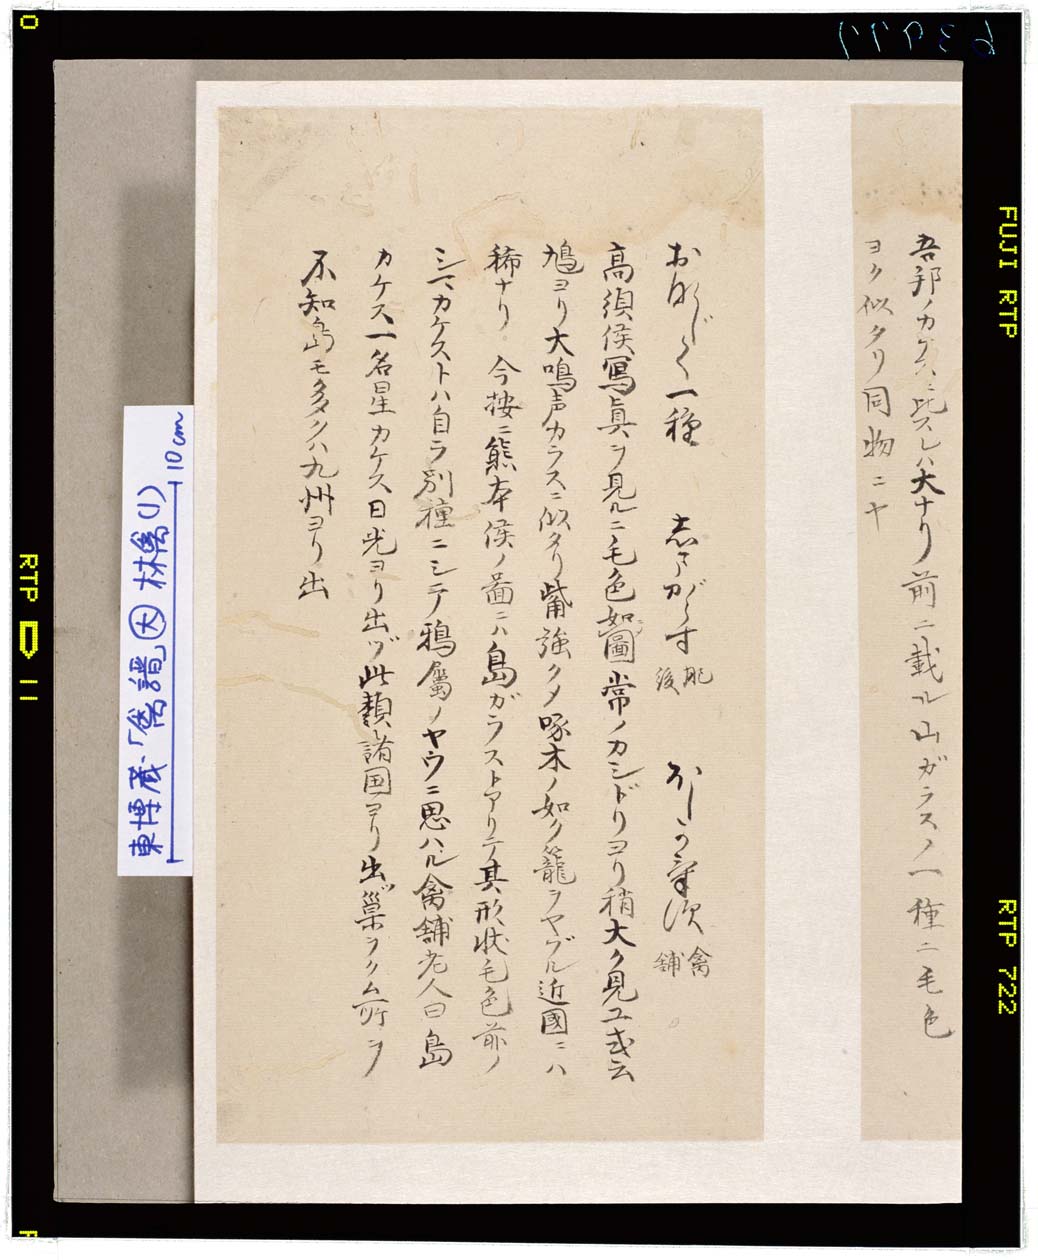 吾邦ノカケスニ比スレハ大ナリ前ニ載ル山ガラスノ一種ニ毛色
ヨク似タリ同物ニヤ
一種 志まがらす 肥後 ほしかけす 禽舗
高須侯寫眞ヲ見ルニ毛色如圖常ノカシドリヨリ稍大ク見ユ或云
鳩ヨリ大鳴声カラスニ似タリ觜強クメ啄木ノ如ク籠ヲヤブル近國ニハ
稀ナリ 今按ニ熊本侯ノ啚ニハ島ガラストアリテ其形状毛色前ノ
シマカケストハ自ラ別種ニシテ鴉屬ノヤウニ思ハル禽舗老人曰島
カケス一名星カケス日光ヨリ出ヅ此類諸国ヨリ出巣ヲクム所ヲ
不知島モ多クハ九州ヨリ出
東博蔵・「禽譜」大 林禽(1)
10cm
63977
FUJI RTP
RTP 722
RTP
11